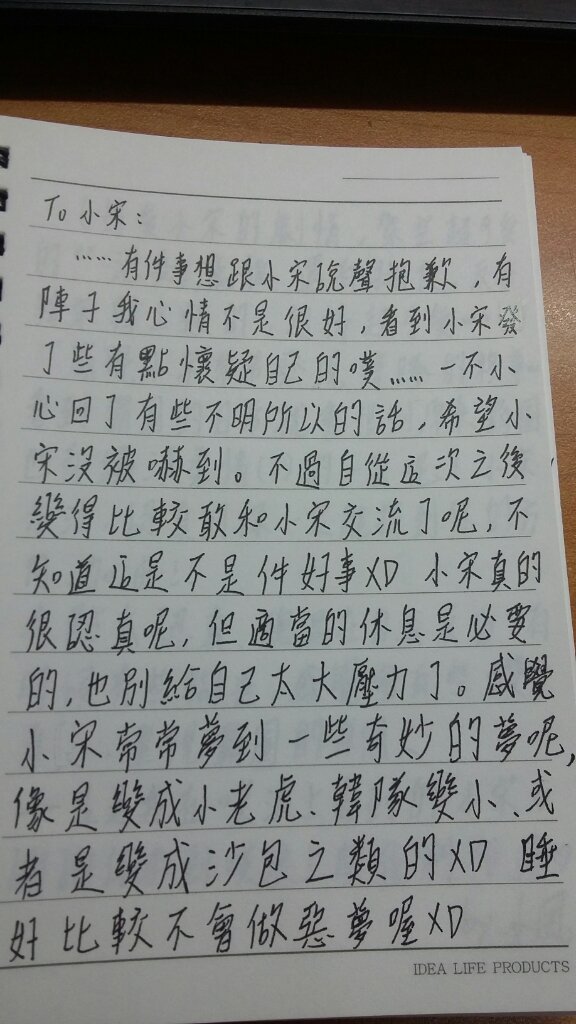 To 小宋：
……有件事想跟小宋說聲抱歉，有
陣子我心情不是很好，看到小宋發
了些有點懷疑自己的噗……一不小
心回了有些不明所以的話，希望小
宋沒被嚇到。不過自從這次之後
變得比較敢和小宋交流了呢，不
知道這是不是件好事XD 小宋真的
很認真呢，但適當的休息是必要
的，也別給自己太大壓力了。感覺
小宋常常夢到一些奇妙的夢呢，
像是變成小老虎、韓隊變小、或
者是變成沙包之類的XD 睡
好比較不會做惡夢喔XD
IDEA LIFE PRODUCTS